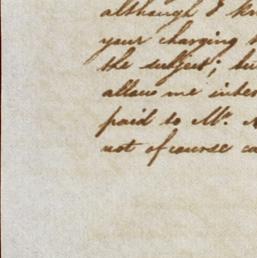 although I
your charging
the subject;
allow me
paid to Mr.
not of course